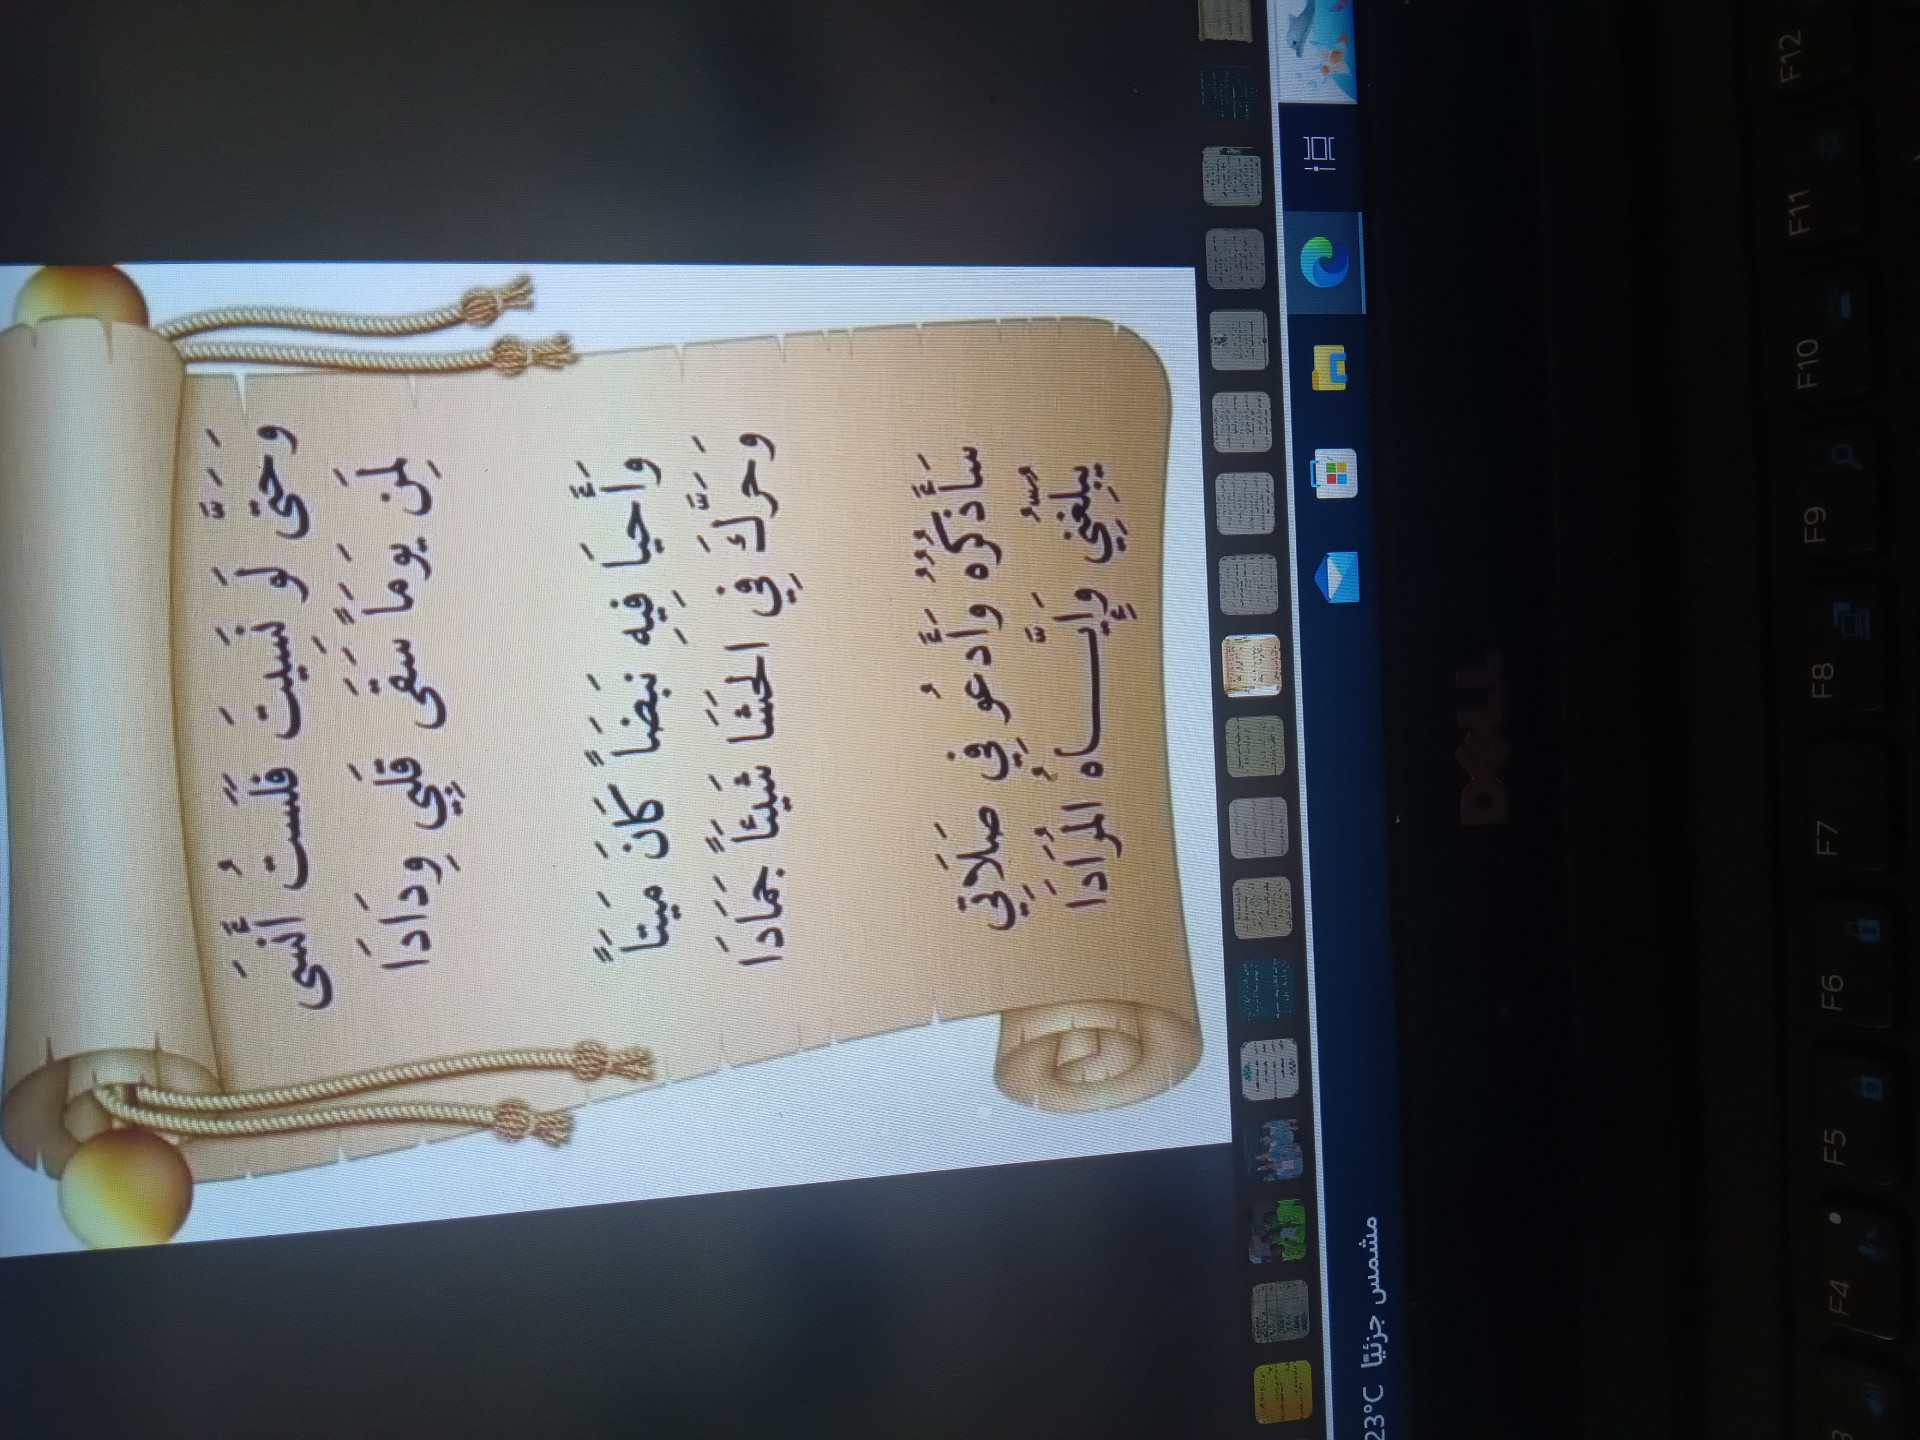 وَحَتَّى لَو نَسَيِتَ فلَستُ أنسَى
لِمَن يَومَاً سَقَى قَلبِي وِدَادَا
وَأَحيَا فِيهِ نَبضَاً كَانَ مَيتَاً
وَحَرَّكَ فِي الحَشَا شَيئَاً جَمَادَا
سَأَذكُرُهُ وَأَدعُو فِي صَلَاتِي
يُبِلِّغُنِي وَإِيَّـــاهُ المُرَادَا
DELL
23°C مشمس جزئيًا
F4
F5
F6
F7
F8
F9
F10
F11
F12